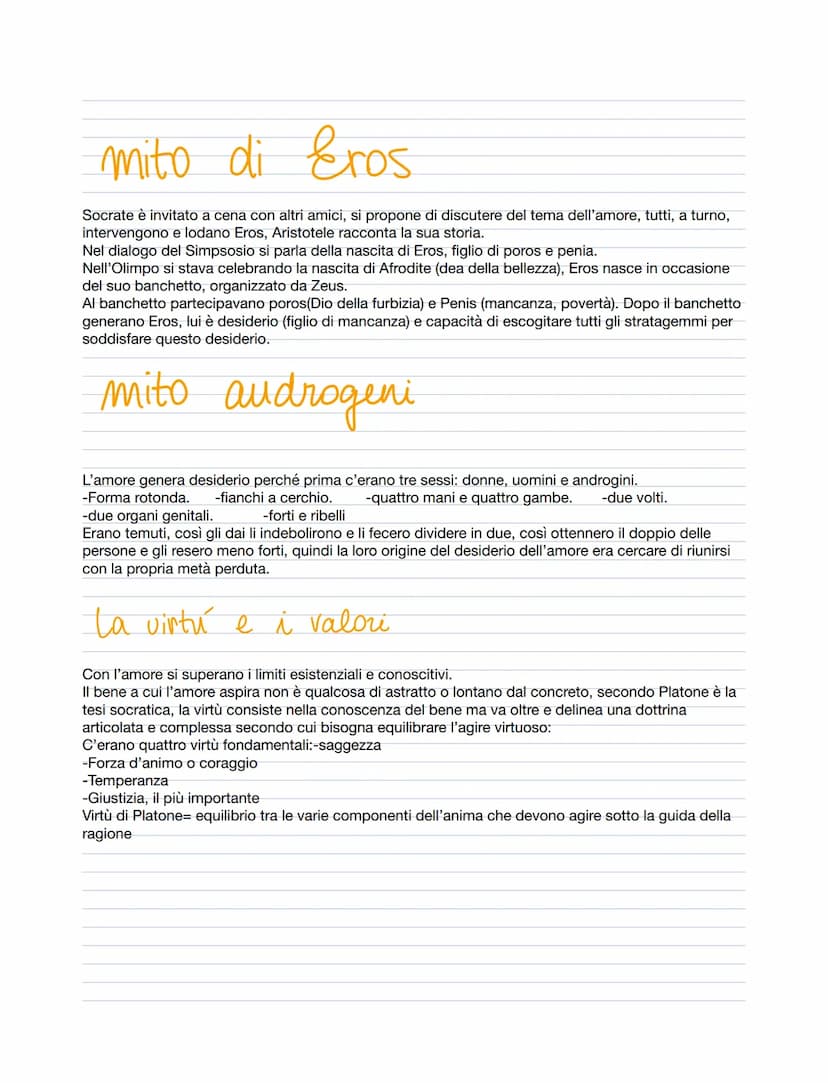 mito di Eros
Socrate è invitato a cena con altri amici, si propone di discutere del tema dell'amore, tutti, a turno,
intervengono e lodano Eros, Aristotele racconta la sua storia.
Nel dialogo del Simpsosio si parla della nascita di Eros, figlio di poros e penia.
Nell'Olimpo si stava celebrando la nascita di Afrodite (dea della bellezza), Eros nasce in occasione
del suo banchetto, organizzato da Zeus.
Al banchetto partecipavano poros(Dio della furbizia) e Penis (mancanza, povertà). Dopo il banchetto
generano Eros, lui è desiderio (figlio di mancanza) e capacità di escogitare tutti gli stratagemmi per
soddisfare questo desiderio.
mito audrogeni
L'amore genera desiderio perché prima c'erano tre sessi: donne, uomini e androgini.
-Forma rotonda. -fianchi a cerchio. -quattro mani e quattro gambe. -due volti.
-due organi genitali. -forti e ribelli
Erano temuti, così gli dai li indebolirono e li fecero dividere in due, così ottennero il doppio delle
persone e gli resero meno forti, quindi la loro origine del desiderio dell'amore era cercare di riunirsi
con la propria metà perduta.
La virtú e i valori
Con l'amore si superano i limiti esistenziali e conoscitivi.
Il bene a cui l'amore aspira non è qualcosa di astratto o lontano dal concreto, secondo Platone è la
tesi socratica, la virtù consiste nella conoscenza del bene ma va oltre e delinea una dottrina
articolata e complessa secondo cui bisogna equilibrare l'agire virtuoso:
C'erano quattro virtù fondamentali:-saggezza
-Forza d'animo o coraggio
-Temperanza
-Giustizia, il più importante
Virtù di Platone= equilibrio tra le varie componenti dell'anima che devono agire sotto la guida della
ragione